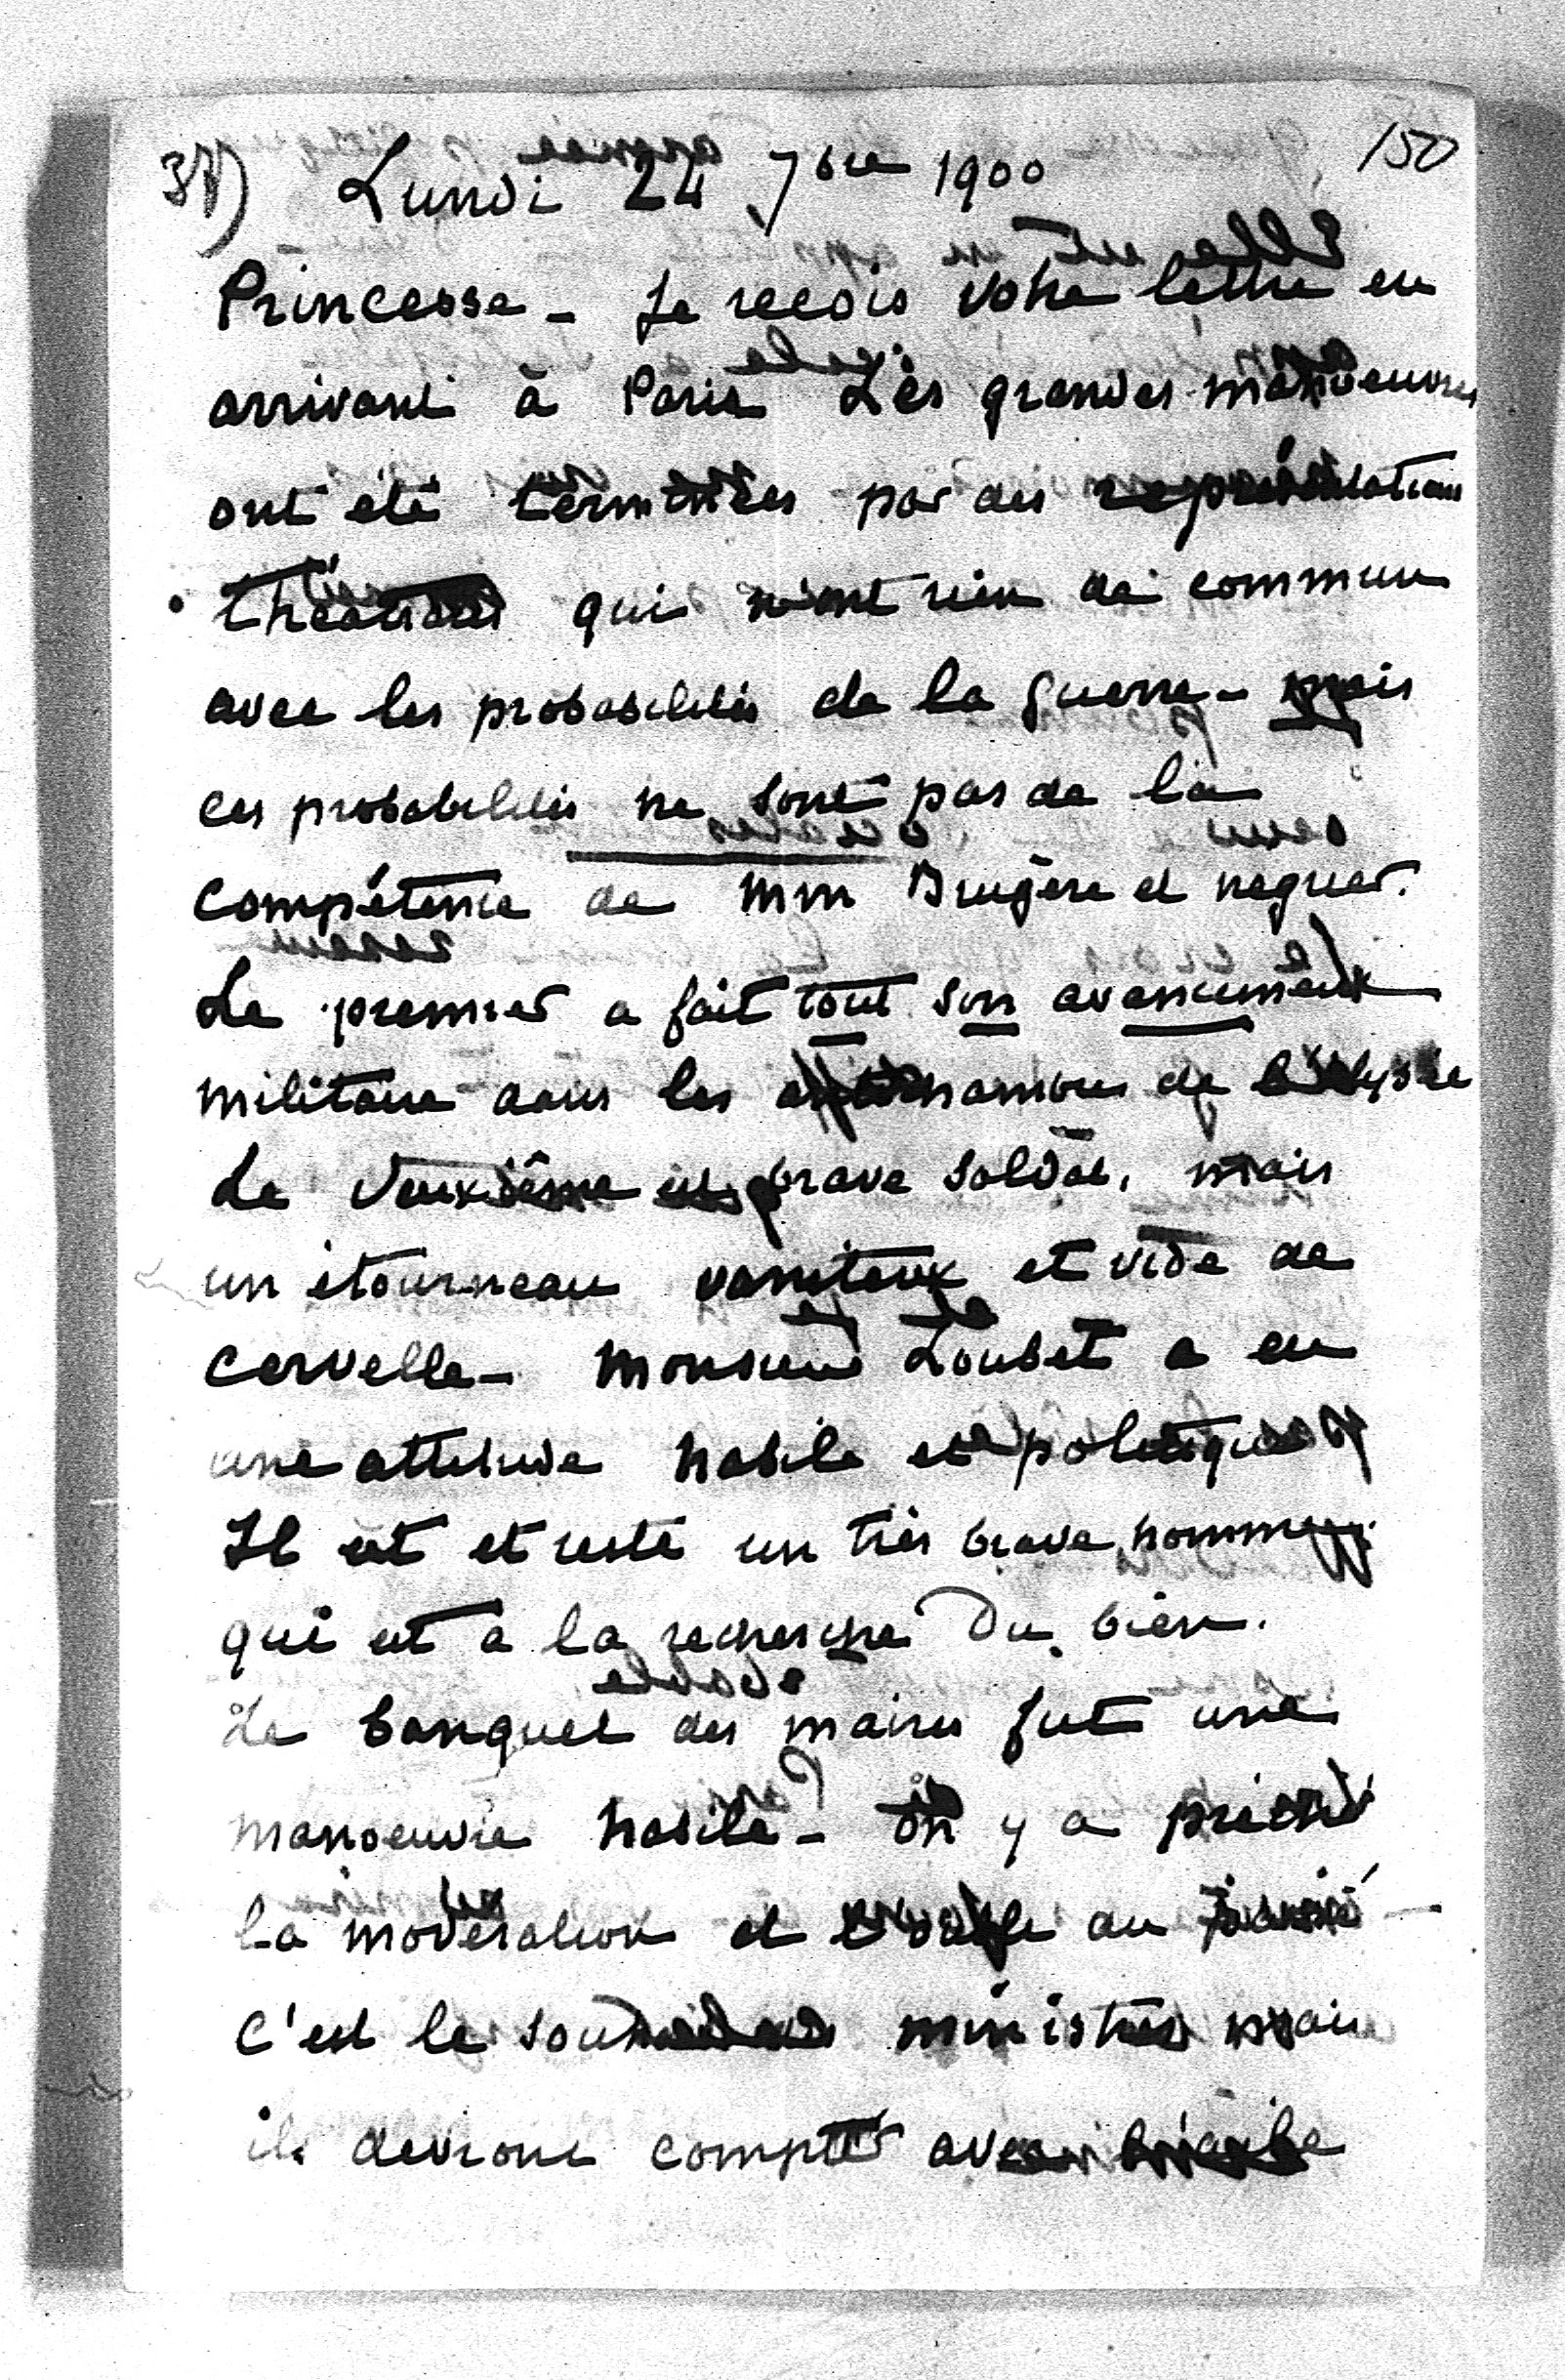 37) Lundi 24 7bre 1900 150
Princesse - Je recois votre lettre en
arrivant à Paris Les grandes manoeuvres
ont été terminées par des représentations
théatrales qui n'ont rien de commun
avec les probabilités de la guerre - mais
ces probabilités ne sont pas de la
compétence de MM Brugère et negrier.
Le premier a fait tout son avancement
militaire dans les antichambres de l'Elysée
Le deuxième est brave soldat, mais
un étourneau vaniteux et vide de
cervelle - Monsieur Loubet a eu
une attitude habile et politique
Il est et reste un très brave homme
qui est à la recherche du bien.
Le banquet des maires fut une
manoeuvre habile - On y a prêché
la modération et au
C'est le ministres mais
ils devront compter avec